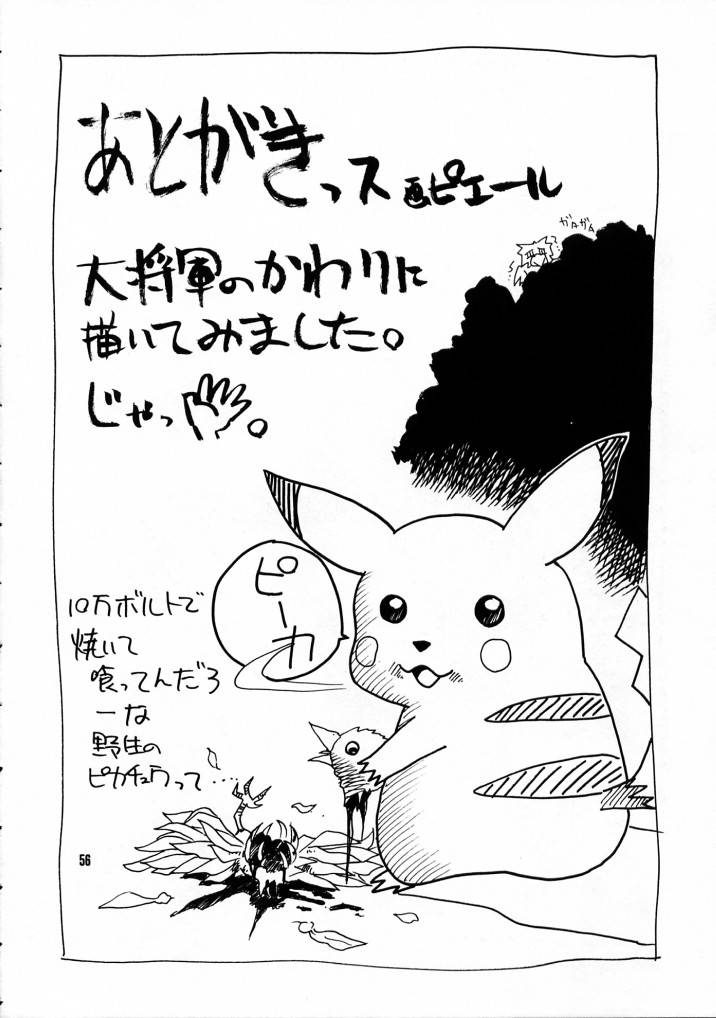 あとがきっス 画ピエール
ガタガタ
大将軍のかわりに
描いてみました。
じゃっ
ピーカ
10万ボルトで
焼いて
喰ってんだろ
ーな
野生の
ピカチュウって…
56